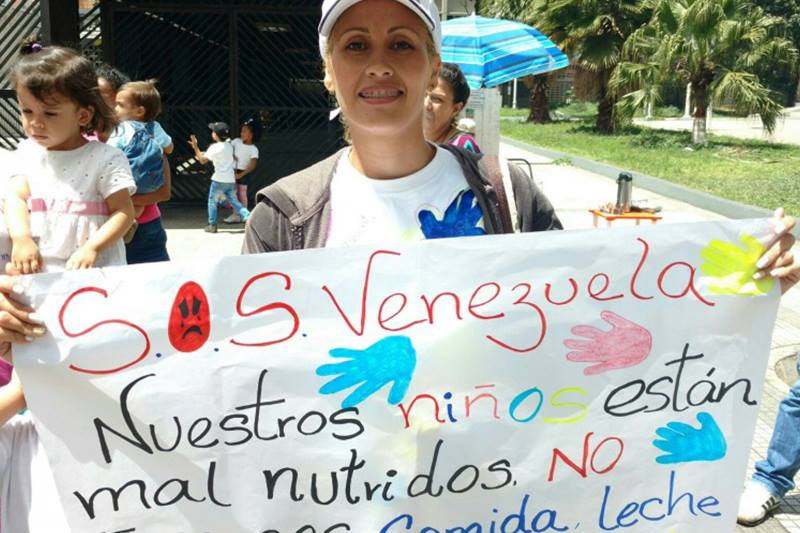 S.O.S. Venezuela
Nuestros niños están
mal nutridos. NO
comida, leche